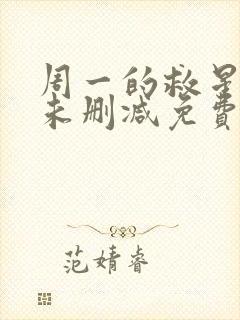 周一的救星
未删减免費
范婧睿